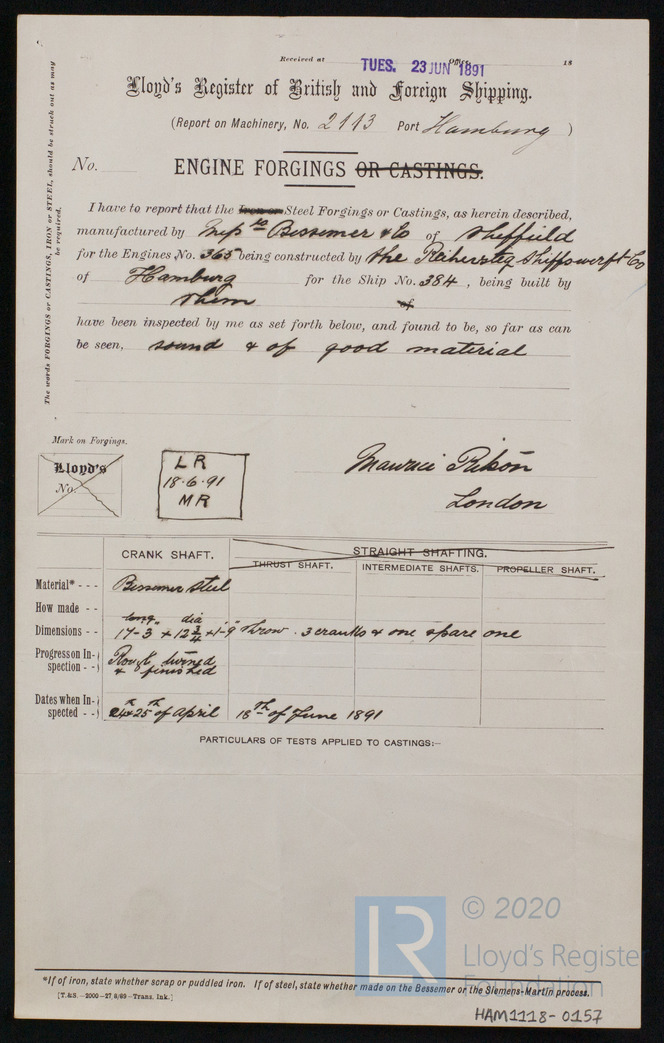 Received at TUES. 23 JUN 1891 18
Lloyd's Register of British and Foreign Shipping.
(Report on Machinery, No. 2113 Port Hamburg )
No. ENGINE FORGINGS OR CASTINGS.
The words FORGINGS or CASTINGS, IRON or STEEL, should be struck out as may
be required.
I have to report that the Iron or Steel Forgings or Castings, as herein described,
manufactured by Messrs Bessemer & Co of Sheffield
for the Engines No. 365 being constructed by the Reiherstieg Shiffswerft Co
of Hamburg for the Ship No. 384 , being built by
them of
have been inspected by me as set forth below, and found to be, so far as can
be seen, sound & of good material
Mark on Forgings.
Lloyd's
No.
LR
18.6.91
MR
Maurice
London
CRANK SHAFT. STRAIGHT SHAFTING.
THRUST SHAFT. INTERMEDIATE SHAFTS. PROPELLER SHAFT.
Material* - - - Bessemer Steel
How made - -
long dia
Dimensions - - 17-3 x 12 3/4 x 1-9 throw . 3 cranks & one spare one
Progress on In-
spection - - turned
& finished
Dates when In-
spected - - 24 & 25th of April 18th of June 1891
PARTICULARS OF TESTS APPLIED TO CASTINGS:—
LR © 2020
Lloyd's Register
Foundation
*If of iron, state whether scrap or puddled iron. If of steel, state whether made on the Bessemer or the Siemens-Martin process.
[T.&S.—2000—27/8/89—Trans. Ink.]
HAM1118-0157